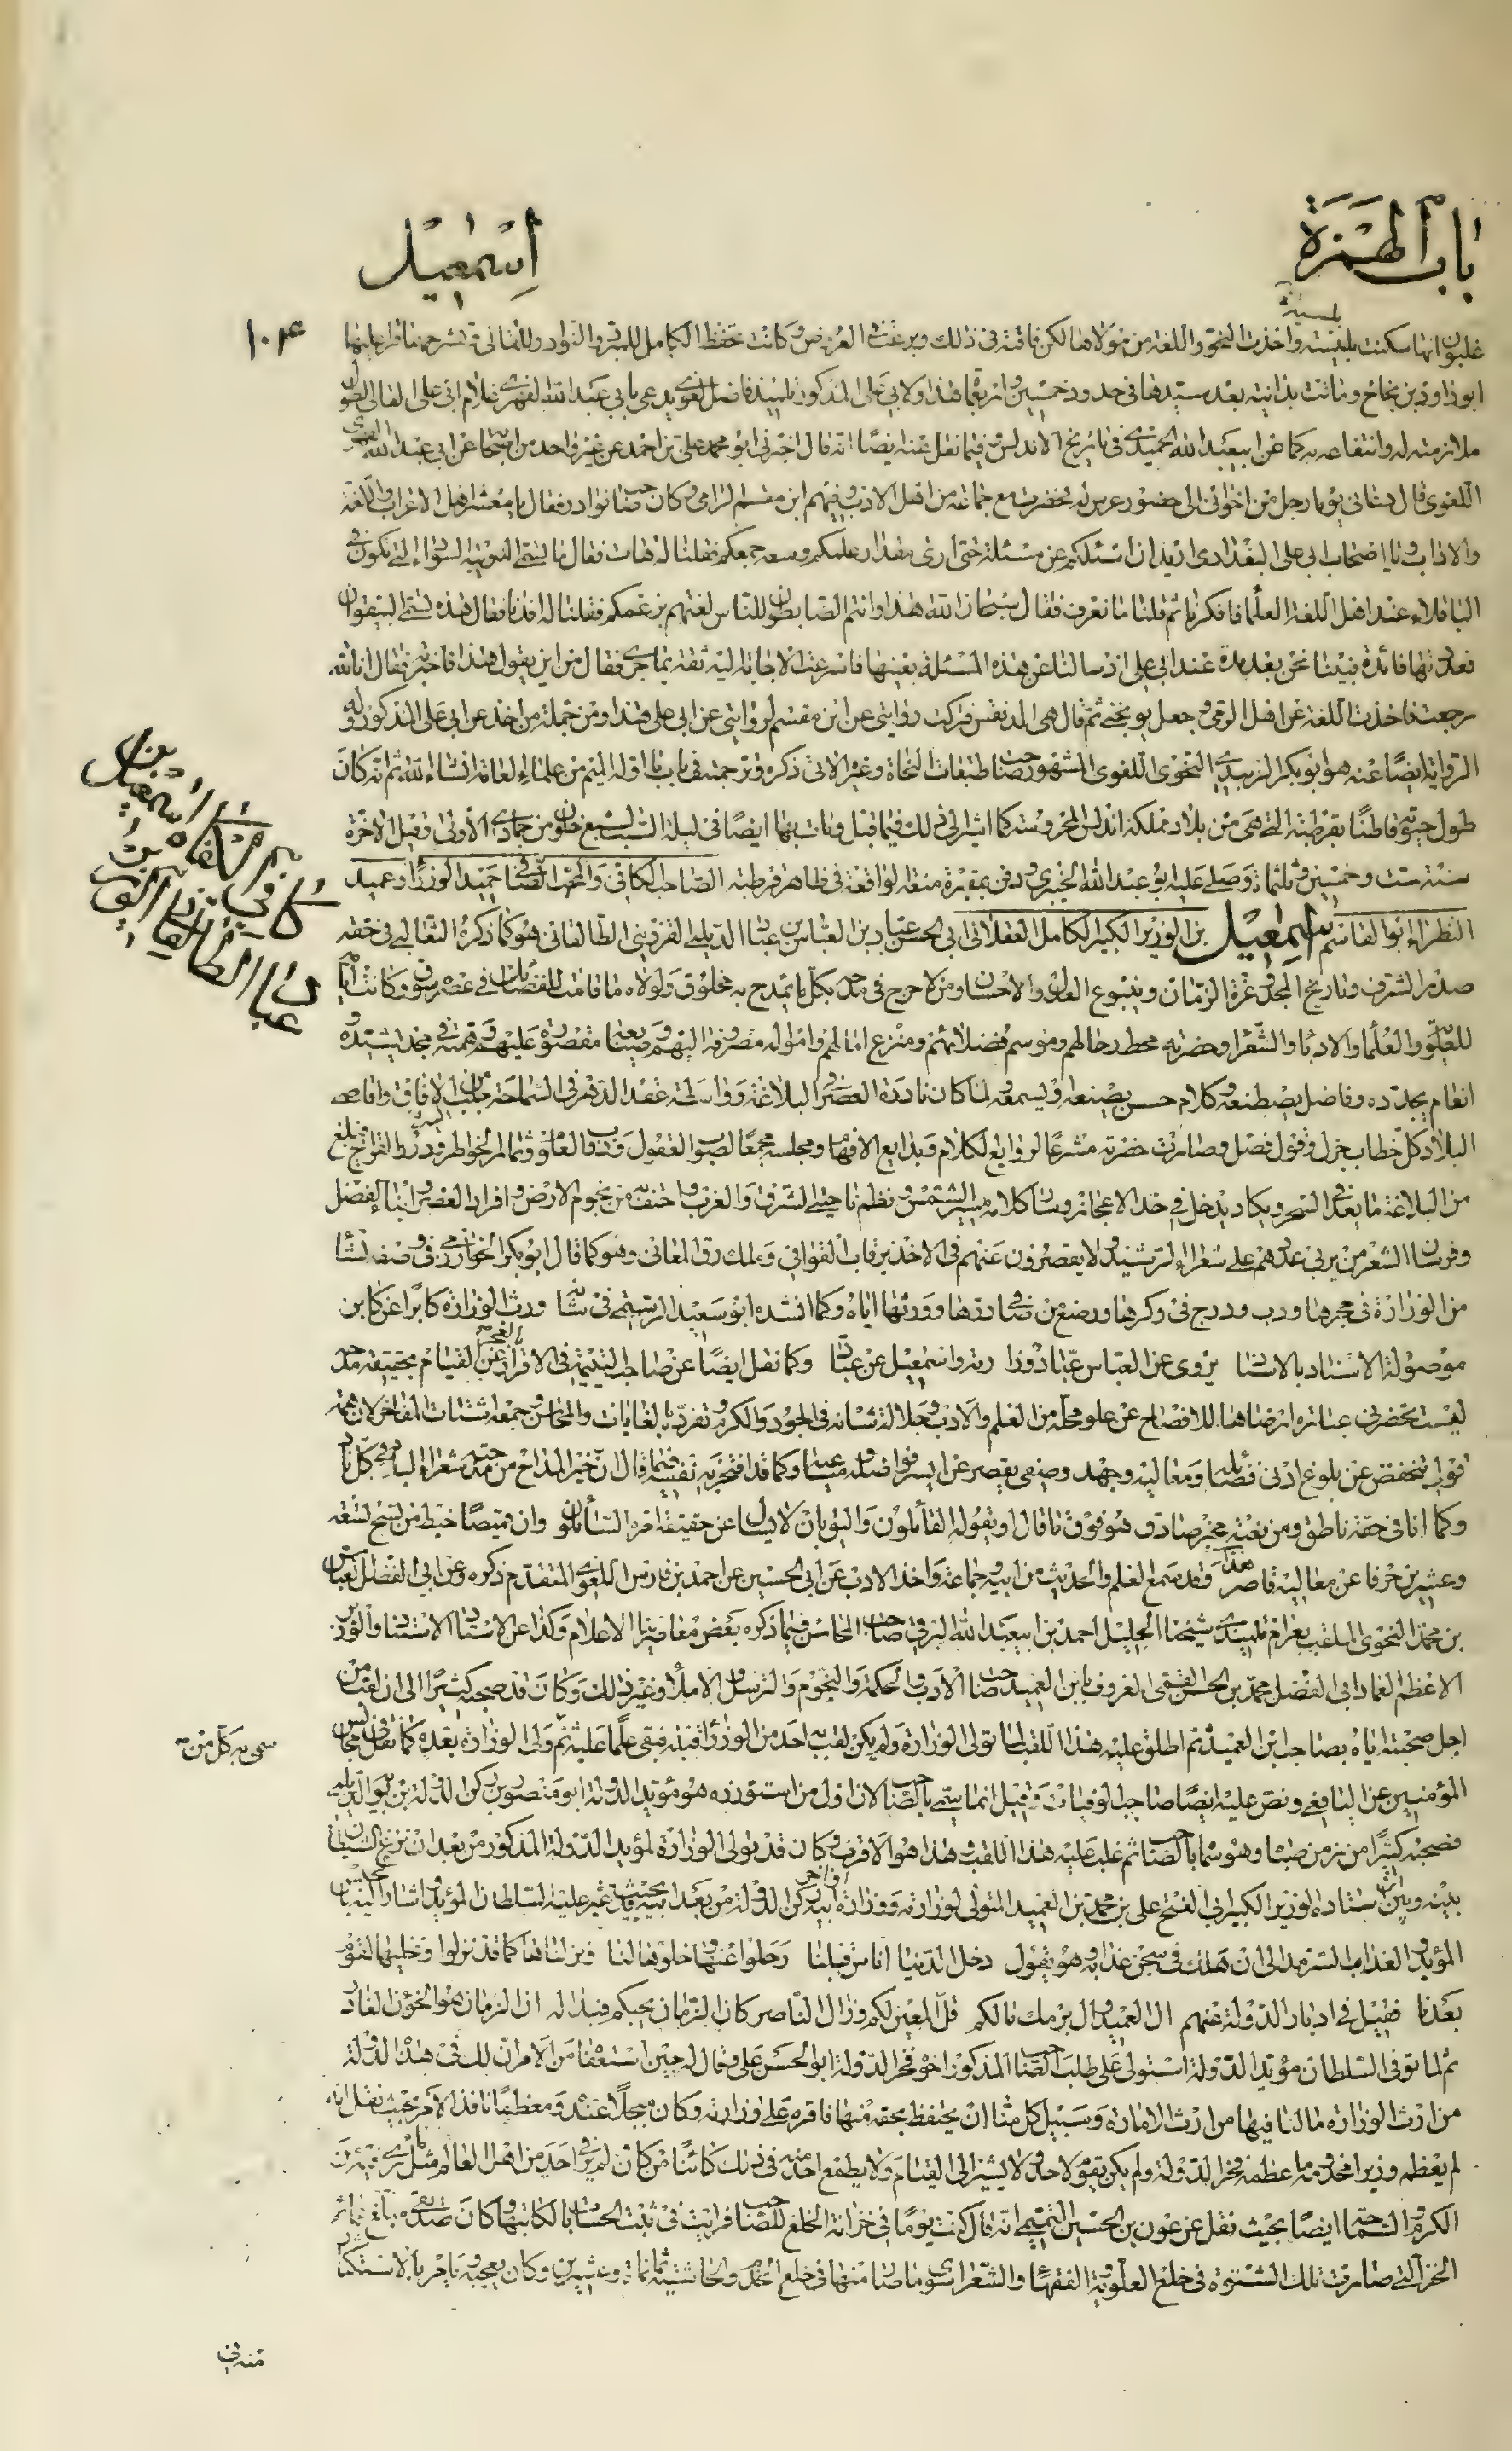 باب الهمزة
اسمعيل
١٠٤
غلبون انها سكنت بلنسية واخذت النحو واللغة من مولاها لكن فاقته في ذلك وبرعت في العروض وكانت تحفظ الكامل للمبرد والنوادر للقالي قرأ عليها
ابو داود بن نجاح وماتت بدانية بعد سيدها في حدود خمسين واربعمائة هذا ولابي علي المذكور تلميذ فاضل لغوي يدعى بابي عبد الله الفهري غلام ابي علي القالي لطول
ملازمته له وانتفاعه به كما عن ابي عبد الله الحميدي في تاريخ الاندلس وفيما نقل عنه ايضا انه قال اخبرني ابو محمد علي بن احمد عن غير واحد من اصحابه عن ابي عبد الله الفهري
اللغوي قال دعاني يوما رجل من اخواني الى حضور عرس له فحضرت مع جماعة من اهل الادب وفيهم ابن مقسم الزامر وكان صاحب نوادر فقال يا معشر اهل الاعراب واللغة
والاداب ويا اصحاب ابي علي البغدادي اريد ان اسئلكم عن مسئلة حتى ارى مقدار علمكم وسعة جمعكم فقلنا له هات فقال ما تسمى الدويبة السوداء التي تكون في
الباقلاء عند اهل اللغة العلماء فافكرنا ثم قلنا ما نعرف فقال سبحان الله هذا وانتم الضابطون للناس لغتهم بزعمكم فقلنا له افدنا فقال هذه تسمى البيقوان
فعددتها فائدة فبينا نحن بعد مدة عند ابي علي اذ سالنا عن هذه المسئلة بعينها فاسرعت الاجابة اليه ثقة بما جرى فقال من اين تقول هذا فاخبرته فقال انا لله
رجعت فاخذت اللغة عن اهل الزمر وجعل يوبخني ثم قال هي الدنقس فتركت روايتي عن ابن مقسم لروايتي عن ابي علي هذا ومن جملة من اخذ عن ابي علي المذكور وله
الرواية ايضا عنه هو ابو بكر الزبيدي النحوي اللغوي المشهور صاحب طبقات النحاة وغيره الاتي ذكره وترجمته في باب ما اوله الميم من علماء العامة انشاء الله ثم انه كان
طول حيوته قاطنا بقرطبة التي هي من بلاد مملكة اندلس المحروسة كما اشير الى ذلك فيما قبل ومات بها ايضا في ليلة السبت لسبع خلون من جمادي الاولى وقيل الاخرة
سنة ست وخمسين وثلثمائة وصلى عليه ابو عبد الله الجبيري ودفن بمقبرة متعة الواقعة في ظاهر قرطبة الصاحب الكافي والمحب الصافي حميد الوزراء وعميد
النظراء ابو القاسم اسمعيل بن الوزير الكبير الكامل العقلاني ابي الحسن عباد بن العباس بن عباد الديلمي القزويني الطالقاني هو كما ذكره الثعالبي في حقه
صدر الشرق وتاريخ المجد وغرة الزمان وينبوع العدل والاحسان ومن لا حرج في مدحه بكل ما يمدح به مخلوق ولولاه ما قامت للفضل في عصره سوق وكانت ايامه
للعلوية والعلماء والادباء والشعراء وحضرته محط رحالهم وموسم فضلائهم ومنزع امالهم وامواله مصروفة اليهم وصنايعه مقصورة عليهم وهمته في مجد يشيده و
انعام يجدده وفاضل يصطنعه وكلام حسن يصنعه او يسمعه ولما كان نادرة العصر في البلاغة وواسطة عقد الدهر في السماحة جلب اليه من الافاق واقاصي
البلاد كل خطاب جزل وقول فصل وصارت حضرته مشرعا لروايع الكلام وبدايع الافهام ومجلسه مجمعا لصوب العقول وذوب العلوم وثمار الخواطر ودرر القرايح فبلغ
من البلاغة ما يعد في السحر ويكاد يدخل في حد الاعجاز وسار كلامه مسير الشمس ونظم ناحيتي الشرق والغرب واحتف به من نجوم الارض وافراد العصر وابناء الفضل
وفرسان الشعر من يربي عددهم على شعراء الرشيد ولا يقصرون عنهم في الاخذ برقاب القوافي وملك رق المعاني وهو كما قال ابو بكر الخوارزمي في وصفه نشأ
من الوزارة في حجرها ودب ودرج في وكرها ورضع من افاويق درها وورثها اباه وكما انشده ابو سعيد الرستمي في شانه ورث الوزارة كابرا عن كابر
موصولة الاسناد بالاسناد يروي عن العباس عباد وزارته واسمعيل عن عباد وكما نقل ايضا عن صاحب اليتيمة في الاقرار بالعجز عن القيام بحقيقة مدحه
ليست تحضرني عبارة ارضاها للافصاح عن علو محله من العلم والادب وجلالة شانه في الجود والكرم وتفرده بالغايات والمحاسن وجمعه اشتات المفاخر لان همة
قولي تنخفض عن بلوغ ادنى فضائله ومعاليه وجهد وصفي يقصر عن ايسر فواضله ومساعيه
بن محمد النحوي الملقب بعرام تلميذي شيخنا الجليل احمد بن ابي عبد الله البرقي صاحب المحاسن فيما ذكره بعض معاصرينا الاعلام وكذا عن الاستاد الاستاد والوزير
الاعظم العماد ابي الفضل محمد بن الحسن القمي المعروف بابن العميد صاحب الادب والحكمة والنجوم والترسل والاملاء وغير ذلك وكان قد صحبه كثيرا الى ان لقب من
اجل صحبته اياه بصاحب ابن العميد ثم اطلق عليه هذا اللقب لما تولى الوزارة ولم يكن لقب به احد من الوزراء قبله فبقي علما عليه ثم سمي به كل من ولي الوزارة بعده كما نقل في مجالس
المؤمنين عن اليافعي ونص عليه ايضا صاحب الوفيات وقيل انما سمي بالصاحب لان اول من استوزره هو مؤيد الدولة ابو منصور بن ركن الدولة بن بويه الديلمي
فصحبه كثيرا من زمن صباه وهو سماه بالصاحب ثم غلب عليه هذا اللقب وهذا هو الاقرب وكان قد تولى الوزارة لمؤيد الدولة المذكور من بعد ان نزغ الشيطان
بينه وبين ابن استاده الوزير الكبير ابي الفتح علي بن محمد بن العميد المتولي لوزارته ووزارة ابيه ركن الدولة من بعد ابيه بحيث قد غير عليه السلطان المؤيد واشار اليه بالحبس
المؤبد والعذاب السرمد الى ان هلك في سجن عذابه وهو يقول دخل الدنيا اناس قبلنا رحلوا عنها وخلوها لنا ونزلناها كما قد نزلوا ونخليها لقوم
بعدنا فقيل في ادبار الدولة عنهم ال العميد وال برمك ما لكم قل المعين لكم وزال الناصر كان الزمان يحبكم فبدا له ان الزمان هو الخؤن الغادر
ثم لما توفي السلطان مؤيد الدولة استولى على طلب الصاحب المذكور اخوه فخر الدولة ابو الحسن علي وقال له حين استعفا من الامر ان لك في هذه الدولة
من ارث الوزارة ما لنا فيها من ارث الامارة وسبيل كل منا ان يحتفظ بحقه منها فاقره على وزارته وكان مبجلا عنده ومعظما نافذ الامر بحيث نقل انه
لم يعظم وزيرا مخدومه ما عظمه فخر الدولة ولم يكن يقوم لاحد ولا يشير الى القيام ولا يطمع احد منه في ذلك كائنا من كان
الكرم والسماحة ايضا بحيث نقل عن عون بن الحسين التميمي انه قال كنت يوما في خزانة الخلع للصاحب فرايت في ثبت الحسابات لكاتبها وكان صديقي مبلغ عمائم
الخز التي صارت تلك الشتوة في خلع العلوية والفقهاء والشعراء سوى ما صار منها في خلع الخدم والحاشية ثمانمائة وعشرين وكان يعجبه الخز ويامر بالاستكثار
كافي الكفاة اسمعيل بن
عباد الطالقاني
سمي به كل من
منه في